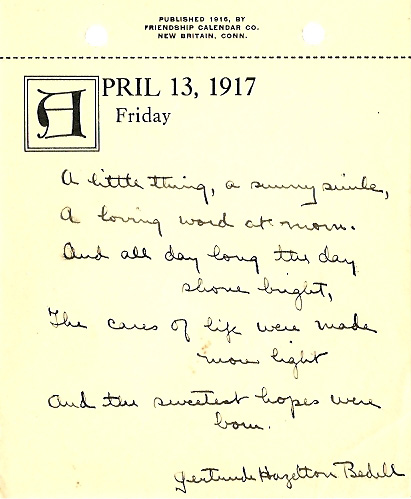 PUBLISHED 1916, BY
FRIENDSHIP CALENDAR CO.
NEW BRITAIN, CONN.
APRIL 13, 1917
Friday
A little thing, a sunny smile,
A loving word at morn.
And all day long the day
shone bright,
The cares of life were made
more light
And the sweetest hopes were
born.
Gertrude Hazelton Bedell